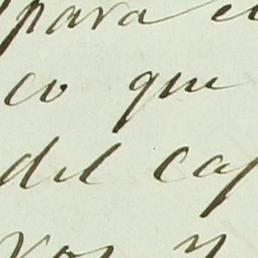 para
co que
del cap
y